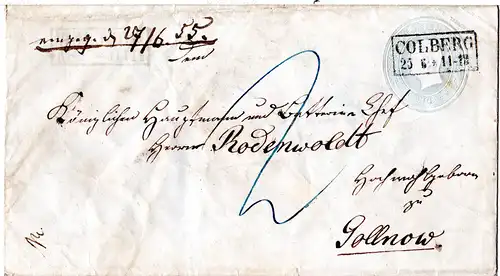 eingeg. d 27/6 55.
COLBERG
25 6 * 11-12
2
Königlichen Hauptmann und Batterie Chef
Herrn Rodenwoldt
Hochwohlgeboren
zu
Gollnow.